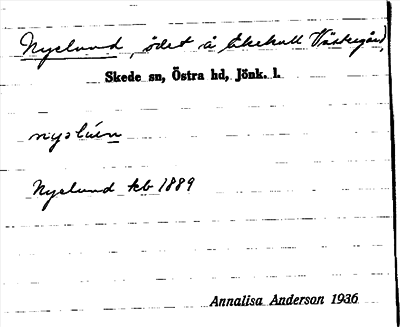 Nyelund, ödet å Ekekull Västergård,
Skede sn, Östra hd, Jönk. l.
nyelund kb 1889
Annalisa Anderson 1936